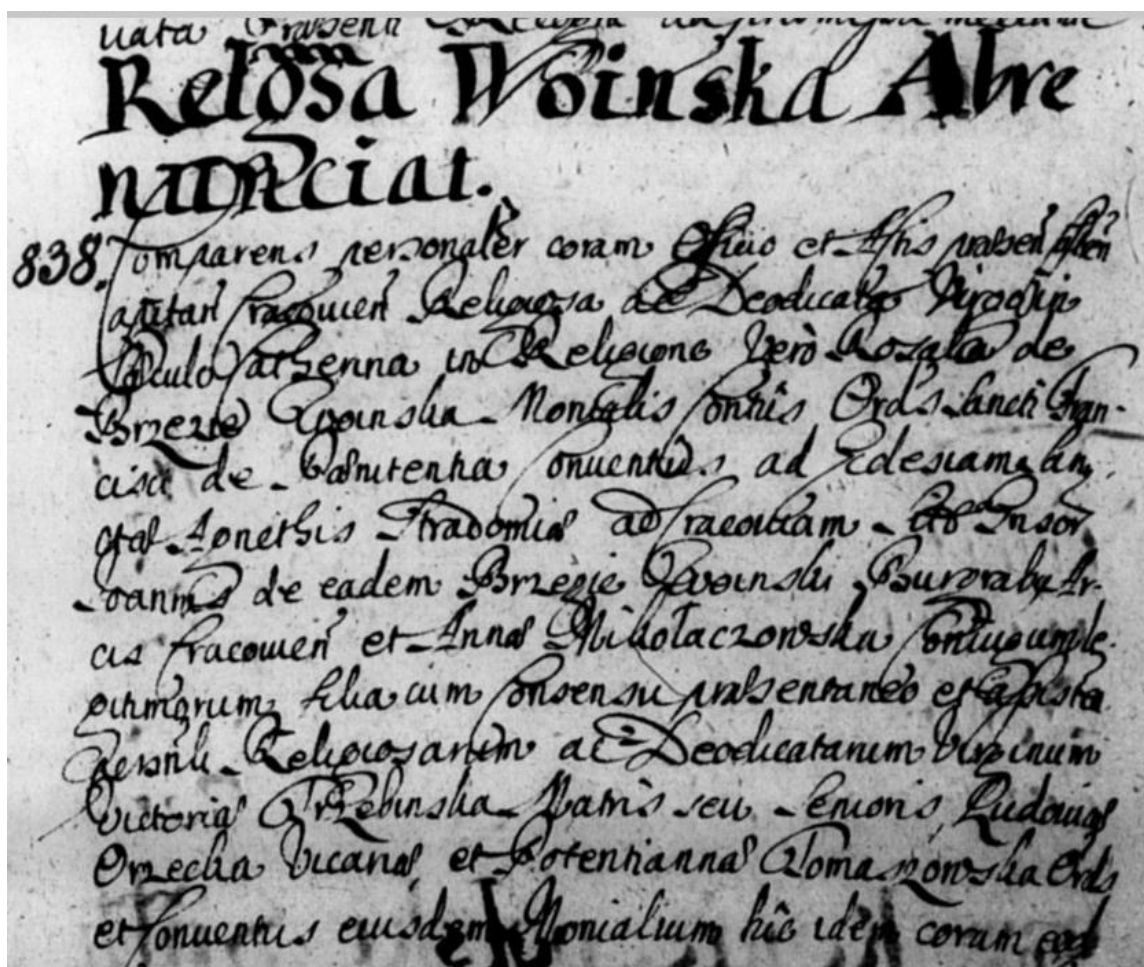 uata præsenti
Relgṡa Woinska Abre
nunciat.
838. Comparens personalr̃ coram Offi͠cio et Actis præsen͠
Capitan͠ Cracouien͠ Religiosa ac Deodicata Virgo in
sæculo Catherina in Religione vero Rosalia de
Brzezie Woinska Monialis Ordi͠s Sancti Fran-
cisci de Pœnitentia Conuentus ad Ecclesiam San
ctæ Agnethis Stradomiæ ad Cracouiam
Joannis de eadem Brzezie Woinski Burgrabij Ar-
cis Cracouien͠ et Annæ Mikołaczowska Coniugum le-
gitimorum filia cum Consensu præsentaneo et assisten
Religiosarum ac Deodicatarum Virginum
Victoriæ Trzebinska Matris seu Senioris, Ludouicæ
Orzecha Vicariæ, et Potentiannæ Tomaszowska Ordi͠s
et Conuentus eiusdem Monialium hic idem coram eod